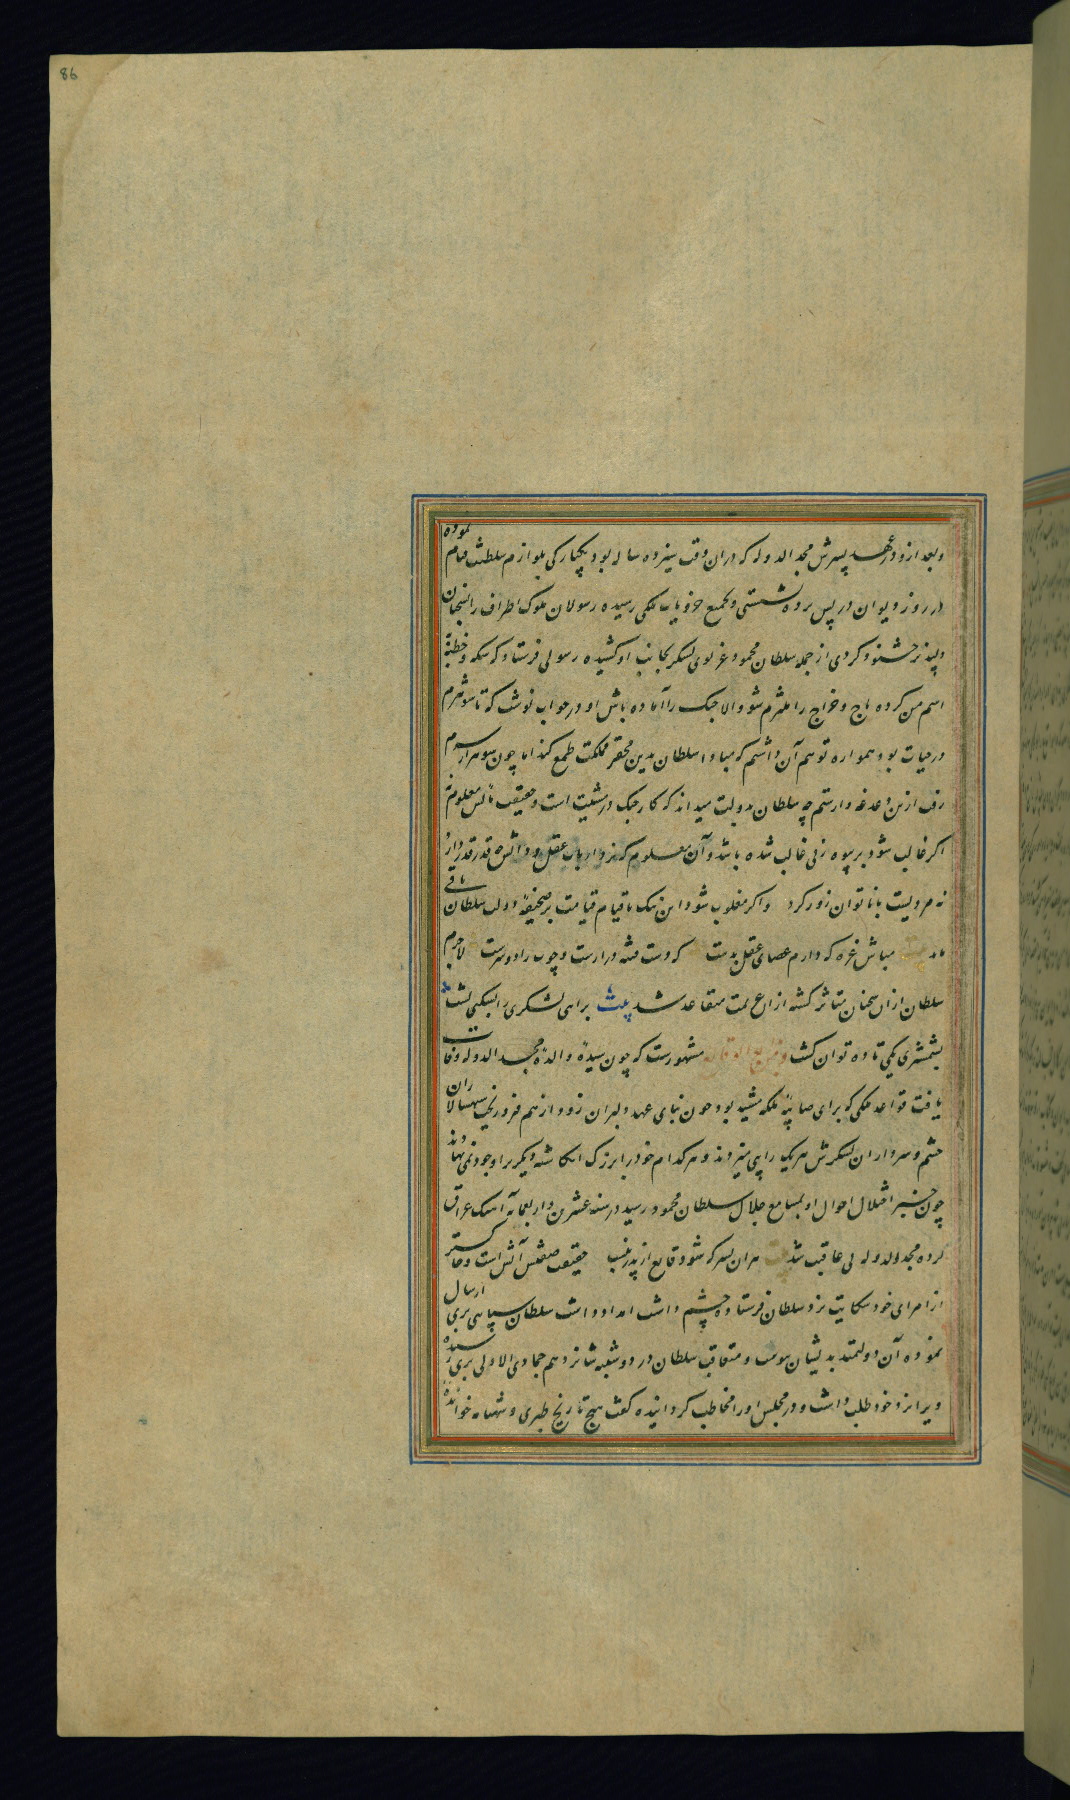 86
و بعد ازو در عهد پسرش مجد الدوله که دران وقت سیزده ساله بود بیکبارکی بلوازم سلطنت قیام نموده
در روز دیوان در پس پرده نشستی و بجمیع جزویات ملکی رسیده رسولان ملوک اطراف را بسخنان
دلپذیر خشنود کردی از جمله سلطان محمود غزنوی لشکر بجانب او کشیده رسولی فرستاد که سکه و خطبه
اسم من کرده باج و خراج را ملتزم شو والا جنک را آماده باش او در جواب نوشت که تا شوهرم
در حیات بود همواره توهم آن داشتم که مبادا سلطان بدین محقر مملکت طمع کند اما چون شوهرم
رفت ازین دغدغه وارستم چه سلطان بدولت میداند که کار جنک در مشیت است و حقیقت مالش معلوم
اکر غالب شود بر بیوه زنی غالب شده باشد و آن معلوم که نزد ارباب عقل و دانش چه قدر دارد
نه مردیست با ناتوان زور کرد واکر مغلوب شود این ننک تا قیام قیامت بر صحیفه دولت سلطان باقی
ماند مباش غره که دارم عصای عقل بدست که دست فتنه درازست و چوب را دو سرست لاجرم
سلطان ازان سخنان متاثر کشته ازان عزیمت متقاعد شد بیت براهی لشکری را بشکنی پشت
بشمشیری یکی تا ده توان کشت مشهورست که چون سیده والده مجد الدوله وفات
یافت قواعد ملکی که برای صایبه ملکه مشید بود چون بنای عهد دلبران زود از هم فرو ریخت سپهسالاران
حشم و سرداران لشکرش هر یک رایی میزدند و هر کدام خود را بزرک انکاشته دیکریرا وجود نمی نهادند
چون خبر اختلال احوال او بمسامع جلال سلطان محمود رسید در سنه عشرین و اربعمائه آهنک عراق
کرده مجد الدوله بی عاقبت شد هران پسر که شود قانع از پدر بنسب حقیقت صفتش آتش است و خاکستر
از امرای خود شکایت نزد سلطان فرستاده چشم داشت امداد داشت سلطان سپاهی بری ارسال
نموده آن دولتمند بدیشان پیوست و متعاقب سلطان در دوشنبه شانزدهم جمادی الاولی بری رسیده
ویرا نزد خود طلب داشت و در مجلس او را مخاطب کردانیده کفت هیچ تاریخ طبری و شهنامه خوانده